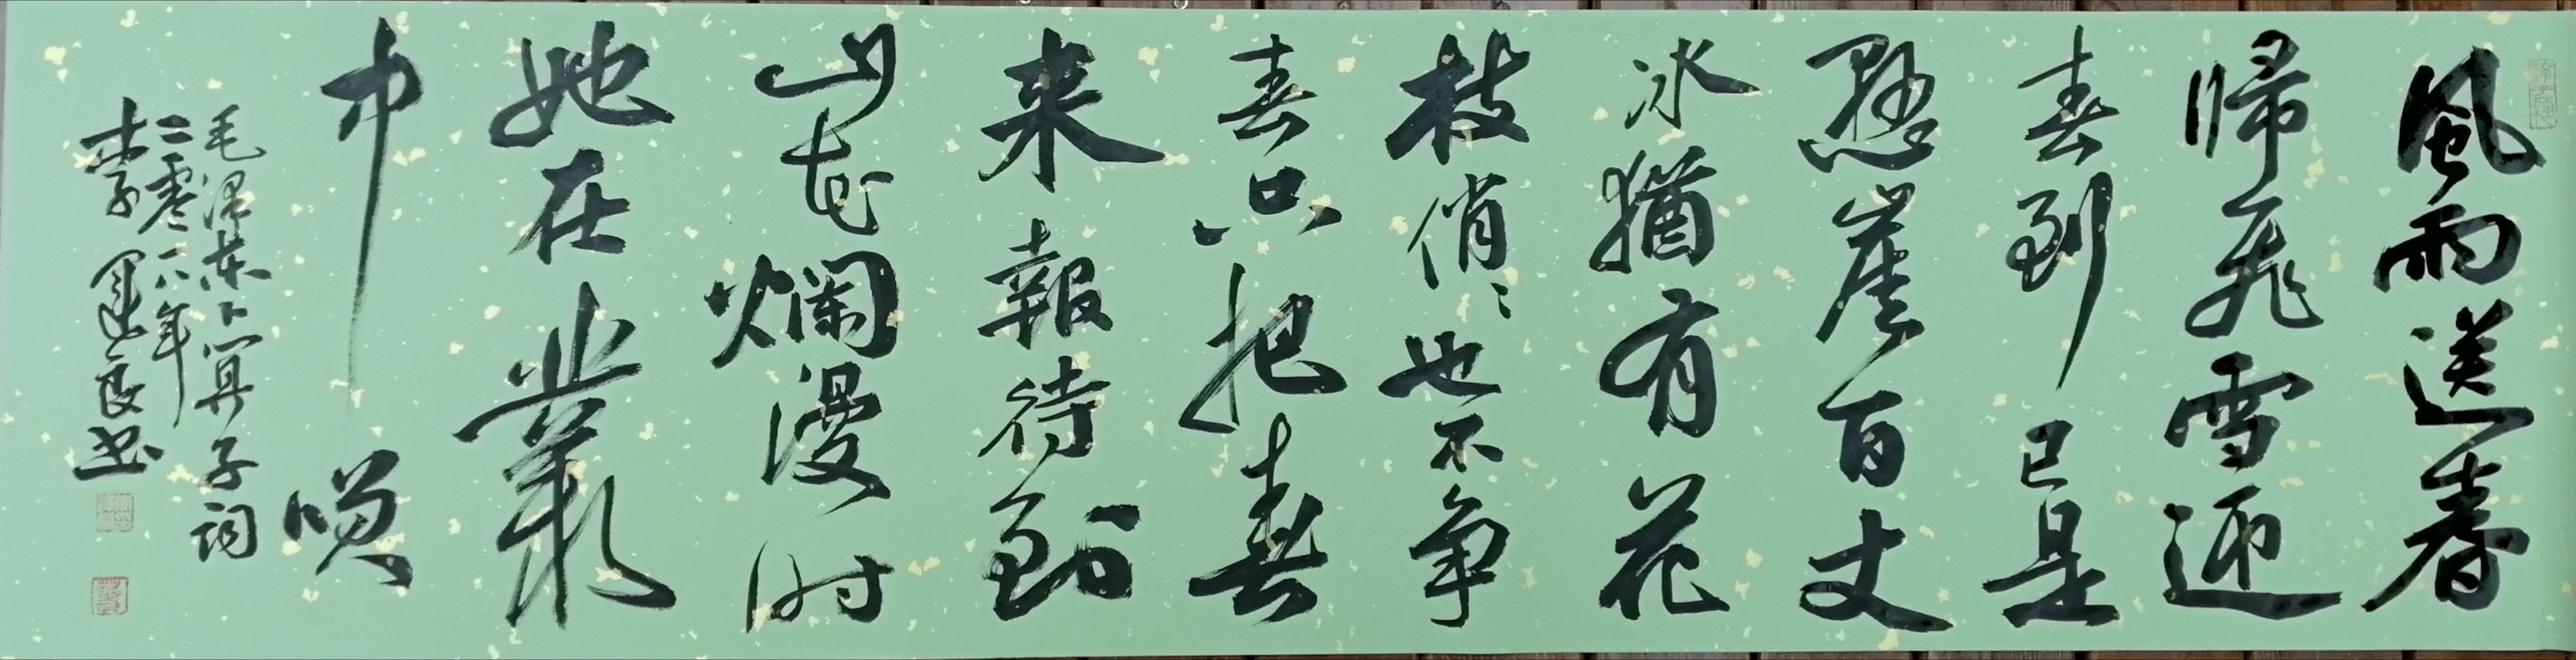 風雨送春
歸飛雪迎
春到已是
懸崖百丈
冰猶有花
枝俏〻也不争
春只把春
来報待到
山花爛漫时
她在叢
中咲
毛泽东卜算子词
二零一八年
李運良书